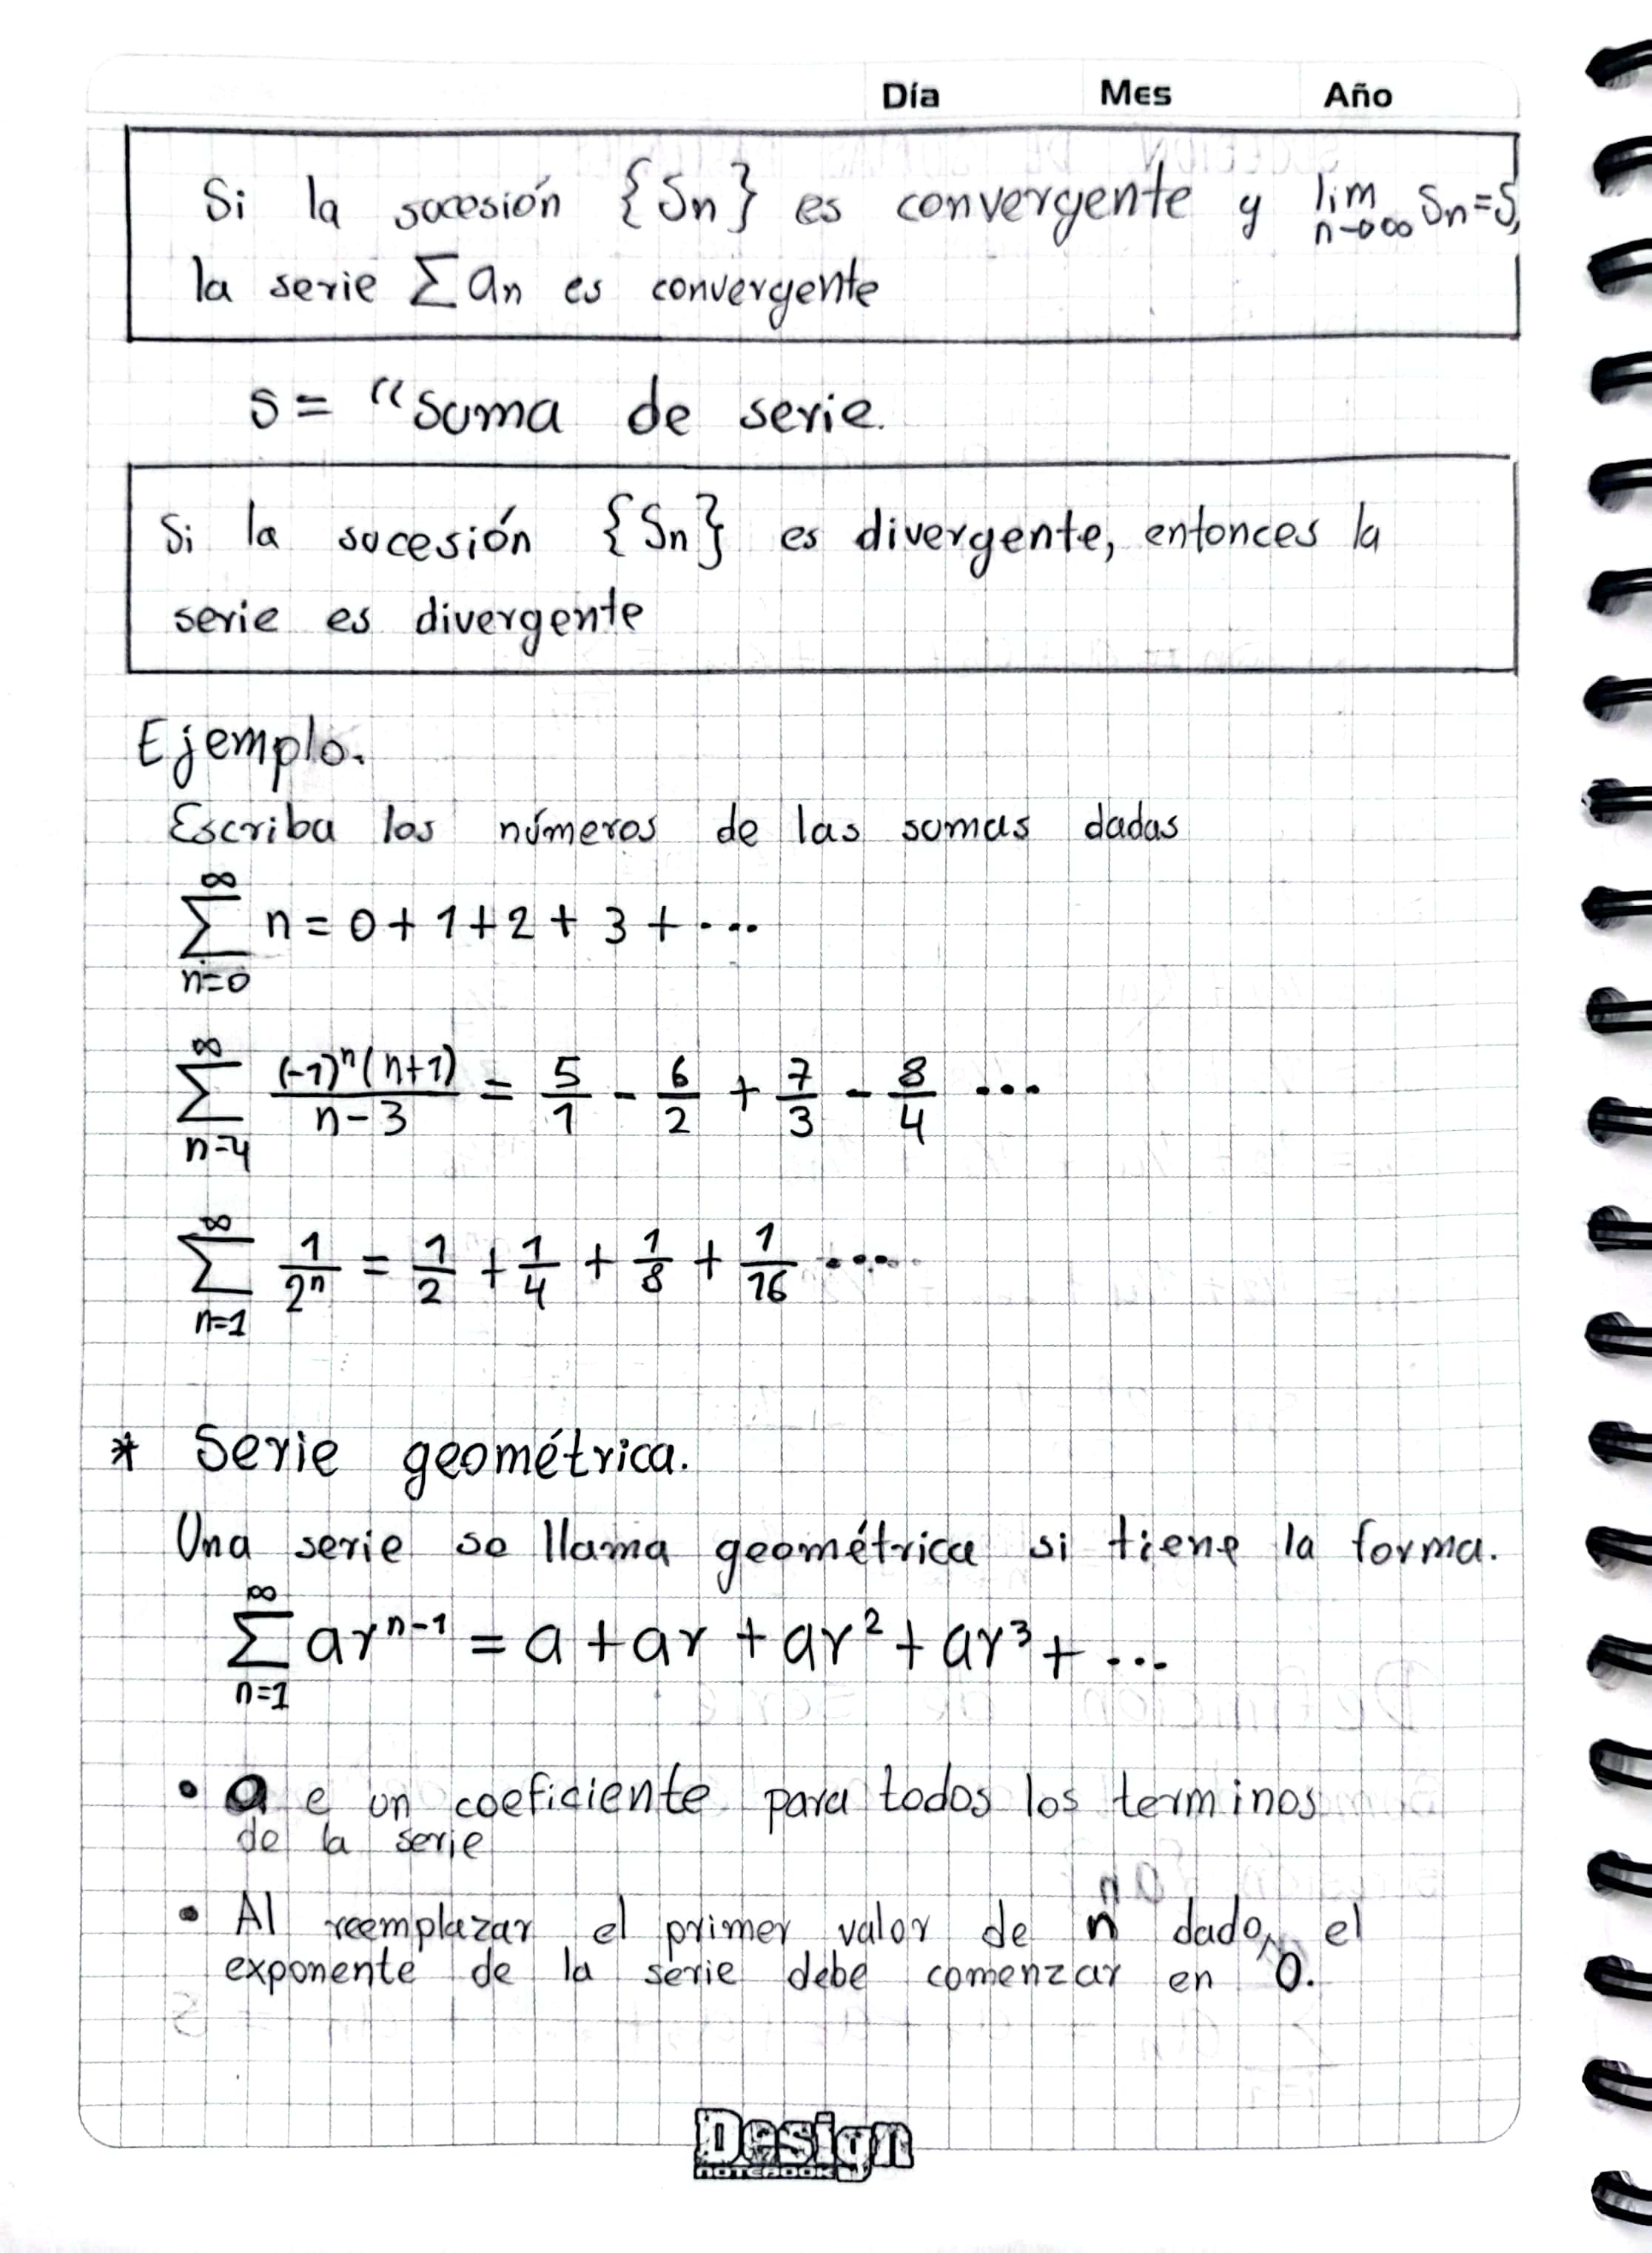 Día Mes Año
Si la sucesión {Sn} es convergente y lim n→∞ Sn=S,
la serie ∑ an es convergente
s = “suma de serie.
Si la sucesión {Sn} es divergente, entonces la
serie es divergente
Ejemplo.
Escriba los números de las sumas dadas
∑_{n=0}^{∞} n = 0 + 1 + 2 + 3 + ...
∑_{n=4}^{∞} (-1)^n (n+1) / (n-3) = 5/1 - 6/2 + 7/3 - 8/4 ...
∑_{n=1}^{∞} 1/2^n = 1/2 + 1/4 + 1/8 + 1/16 ....
* Serie geométrica.
Una serie se llama geométrica si tiene la forma.
∑_{n=1}^{∞} ar^{n-1} = a + ar + ar² + ar³ + ...
• a e un coeficiente para todos los terminos
de la serie
• Al reemplazar el primer valor de n dado, el
exponente de la serie debe comenzar en 0.
Design
NOTEBOOK